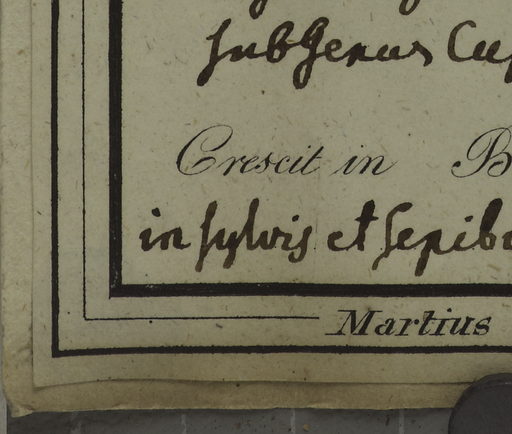 subgenus Cup
Crescit in B
in sylvis et sepibu
Martius